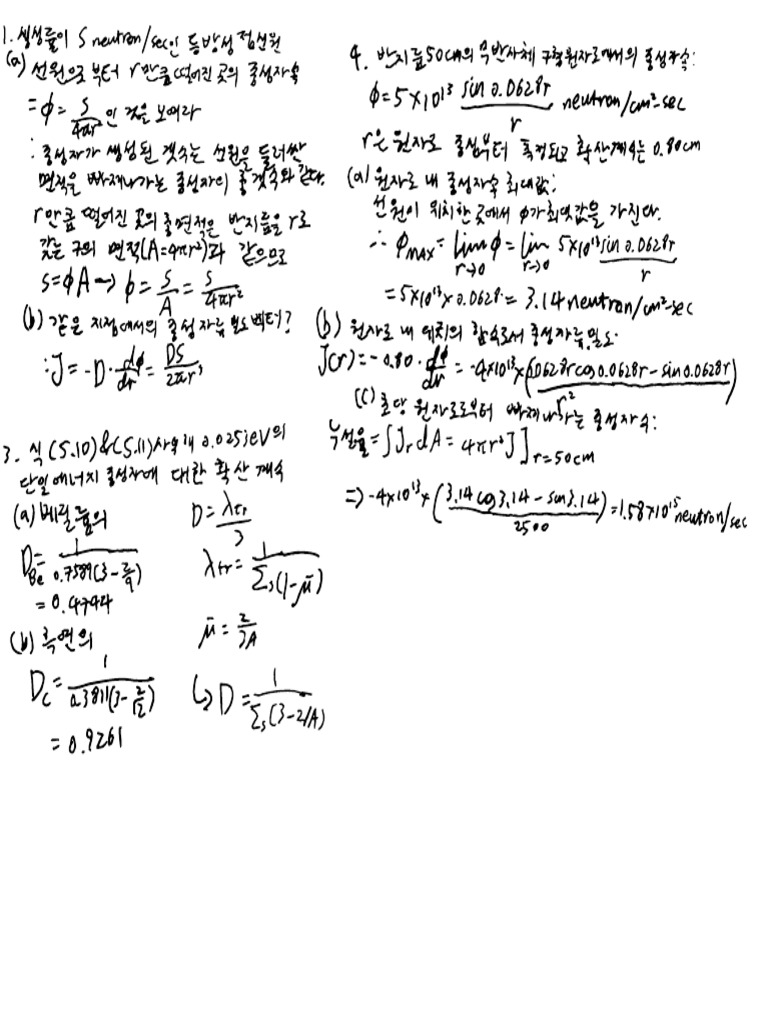 1. 생성률이 S neutron/sec인 등방성 점선원
(a) 선원으로부터 r만큼 떨어진 곳의 중성자속
= φ = S/4πr² 인 것을 보여라
: 중성자가 생성된 갯수는 선원을 둘러싼
면적을 빠져나가는 중성자의 총 갯수와 같다.
r만큼 떨어진 곳의 총면적은 반지름을 r로
갖는 구의 면적(A=4πr²)과 같으므로
S=φA → φ = S/A = S/4πr²
(b) 같은 지점에서의 중성자류 밀도 벡터?
: J = -D·dφ/dr = DS/2πr³
3. 식 (5.10)&(5.11)사용해 0.025eV의
단일에너지 중성자에 대한 확산계수
(a) 베릴륨의
D_Be = 1/0.7589(3-2/9)
= 0.4744
(b) 흑연의
D_c = 1/0.3811(3-2/12)
= 0.9261
D = λtr/3
λtr = 1/Σs(1-μ̄)
μ̄ = 2/3A
↳ D = 1/Σs(3-2/A)
4. 반지름 50cm의 무반사체 구형원자로에서의 중성자속:
φ = 5×10¹³ sin 0.0628r/r neutron/cm²-sec
r은 원자로 중심부터 측정되고 확산계수는 0.80cm
(a) 원자로 내 중성자속 최대값:
선원이 위치한 곳에서 φ가 최댓값을 가진다.
∴ φmax = lim r→0 φ = lim r→0 5×10¹³ sin 0.0628r/r
= 5×10¹³×0.0628 = 3.14 neutron/cm²-sec
(b) 원자로 내 위치의 함수로서 중성자류 밀도:
J(r) = -0.80·dφ/dr = -4×10¹³×(0.0628r cos 0.0628r - sin 0.0628r)/r²
(c) 초당 원자로로부터 빠져나가는 중성자수:
누설율 = ∫J_r dA = 4πr²J]r=50cm
⇒ -4×10¹³×(3.14 cos 3.14 - sin 3.14/2500) = 1.58×10¹⁵ neutron/sec